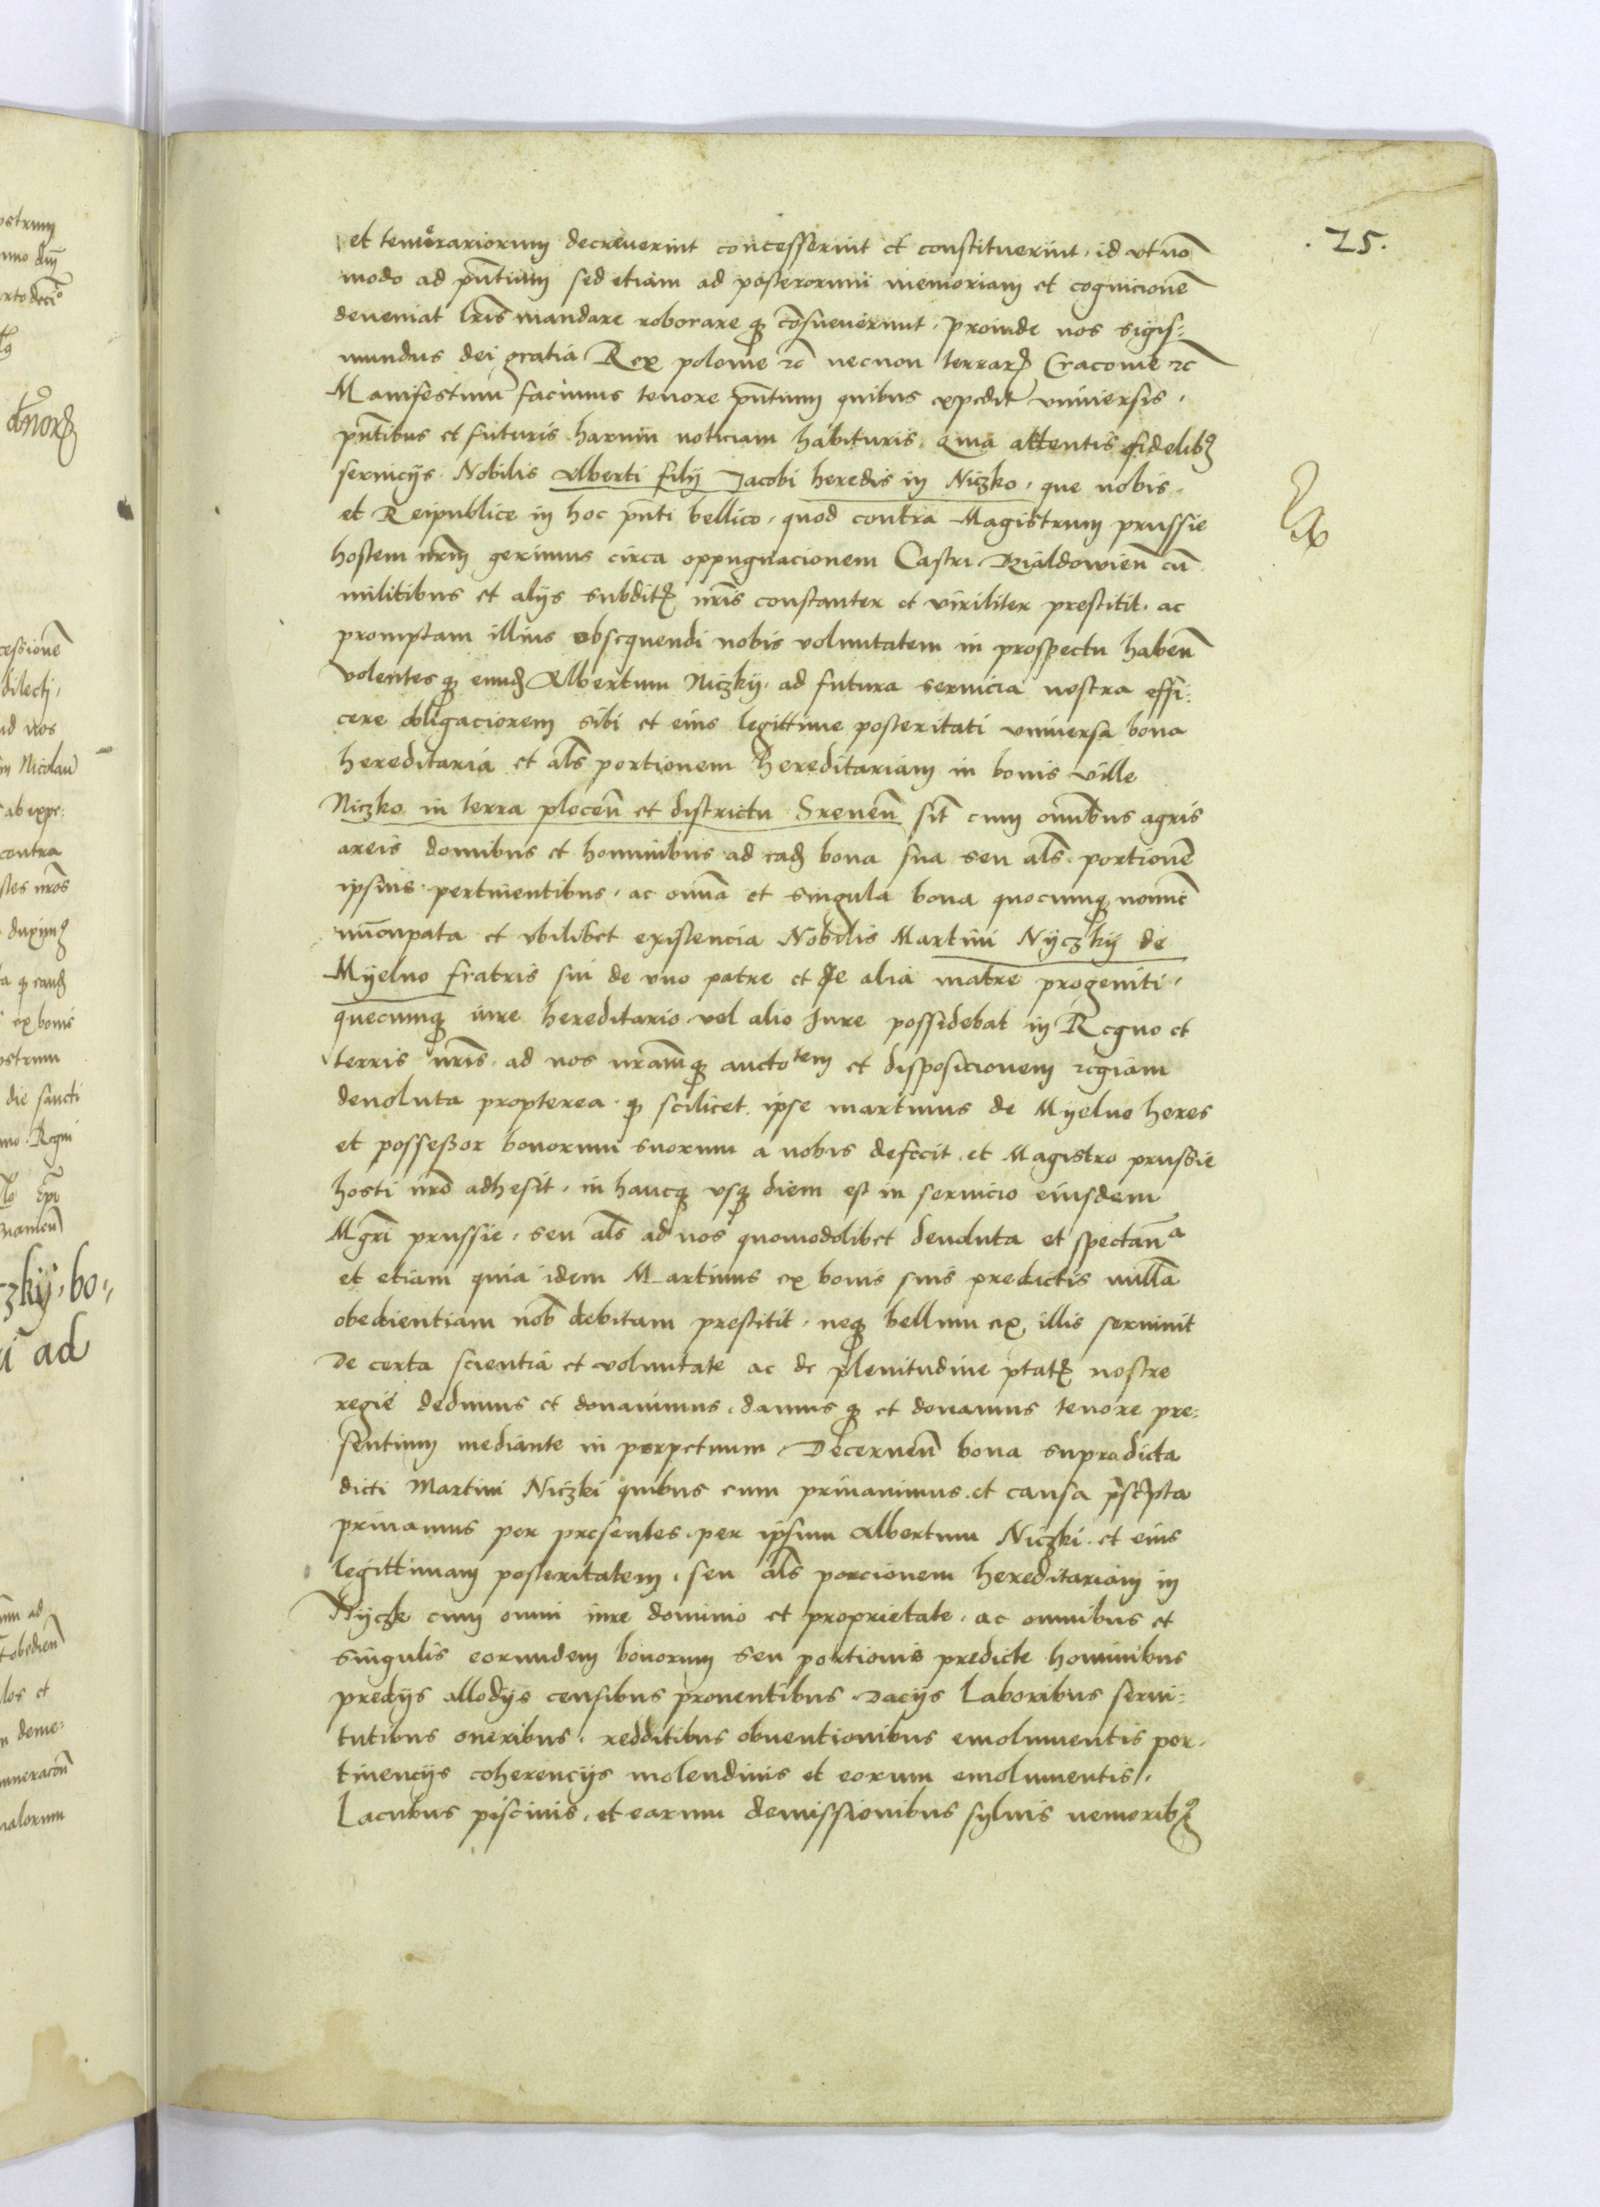 .25.
et temerariorum decreverint concesserint et constituerint, id ut no͞
modo ad pn͞tium sed etiam ad posterorum memoriam et cognicione͞
deveniat lr͞is mandare roborare q͛ co͞sueverunt, Proinde nos sigis-
mundus dei gratia Rex polonie ⁊c necnon terraꝝ Cracovie ⁊c
Manifestum facimus tenore pn͞tium quibus expedit universis,
pn͞tibus et futuris harum noticiam habituris, Quia attentis fidelibꝰ
servicijs Nobilis Alberti filij Jacobi heredis in Niczko, que nobis
et Reipublice in hoc pn͞ti bellico, quod contra Magistrum prussie
hostem nr͞m gerimus circa oppugnacionem Castri Dzialdowien͞ cu͞
militibus et alijs subditꝭ nr͞is constanter et viriliter prestitit, ac
promptam illius obsequendi nobis voluntatem in prospectu haben͞
volentesq͛ eundꝫ Albertum Niczky, ad futura servicia nostra effi-
cere obligaciorem sibi et eius legittime posteritati universa bona
hereditaria et al͞s portionem hereditariam in bonis ville
Niczko in terra plocen͞ et districtu Srenen͞ sit͞ cum omnibus agris
areis domibus et hominibus ad eadꝫ bona sua seu al͞s portione͞
ipsius pertinentibus, ac omnia et singula bona quocumqꝫ nomine
nuncupata et ubilibet existencia Nobilis Martini Nyczky de
Myelno fratris sui de uno patre et de alia matre progeniti,
quecumqꝫ iure hereditario vel alio Jure possidebat in Regno et
terris nr͞is, ad nos nr͞amqꝫ auctotem et disposicionem regiam
devoluta propterea q͛ scilicet ipse martinus de Myelno heres
et possessor bonorum suorum a nobis defecit, et Magistro prussie
hosti nr͞o adhesit, in hancqꝫ usqꝫ diem est in servicio eiusdem
Mgr͞i prussie, seu al͞s ad nos quomodolibet devoluta et spectan͞a
et etiam quia idem Martinus ex bonis suis predictis nulla͞
obedientiam nob͞ debitam prestitit, neqꝫ bellum ex illis servivit
De certa scientia et voluntate ac de plenitudine ptatꝭ nostre
regie dedimus et donavimus, damusqꝫ et donamus tenore pre-
sentium mediante in perpetuum, Decernen͞ bona supradicta
dicti Martini Niczki quibus eum privavimus et causa p͞sc͞pta
privamus per presentes, per ipsum Albertum Niczki et eius
legittimam posteritatem, seu al͞s porcionem hereditariam in
Nyczk cum omni iure dominio et proprietate, ac omnibus et
singulis eorundem bonorum seu portionis predicte hominibus
predijs allodijs censibus proventibus Dacijs Laboribus servi-
tutibus oneribus, redditibus obventionibus emolumentis per-
tinencijs coherencijs molendinis et eorum emolumentis,
Lacubus piscinis, et earum demissionibus sylvis nemoribꝰ
ostrum
nno dn͞j
dn͞orꝝ
cessione͞
dilecti,
ad nos
in Nicolau͞
ab expe-
contra
stes nr͞os
ex bonis
ostrum
die sancti
mo Regni
czky, bo-
i ad
um ad
obedien͞
los et
n deme-
malorum